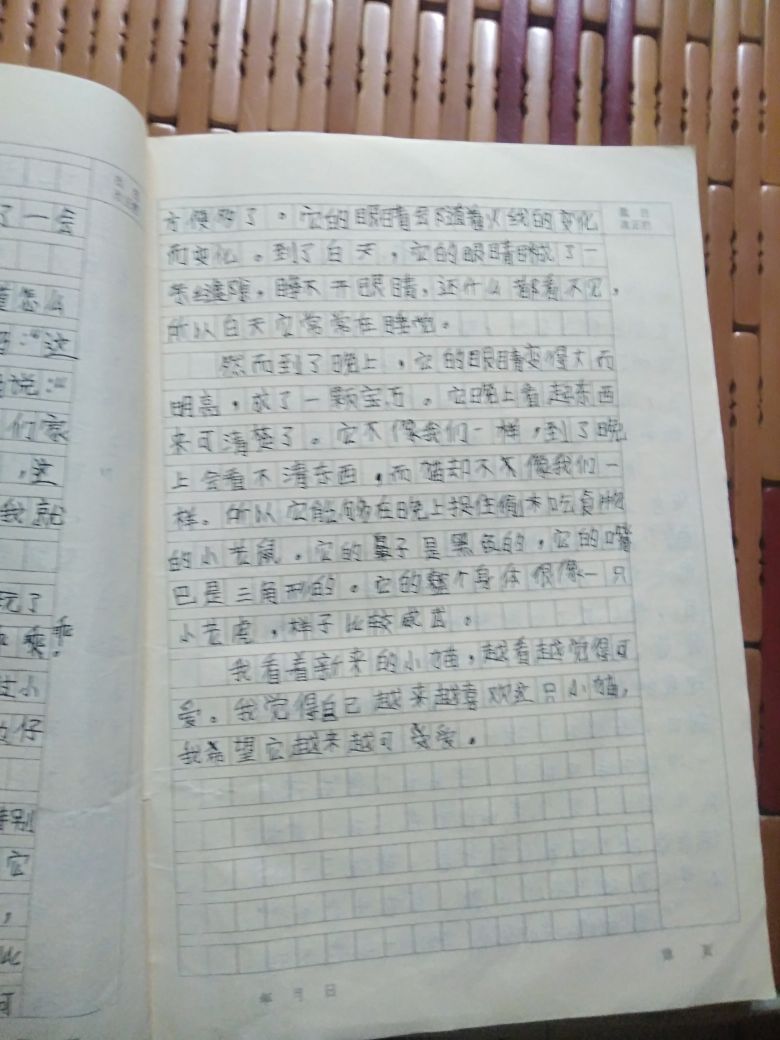 了一会
怎么
:“这
说:“
们家
,这
我就
玩了
乖乖!
小
仔
特别
它
,
可
方便多了。它的眼睛会随着火线的变化
而变化。到了白天,它的眼睛眯成了一
条缝隙,睁不开眼睛,还什么都看不见,
所以白天它常常在睡觉。
然而到了晚上,它的眼睛变得大而
明亮,放了一颗宝石。它晚上看起东西
来可清楚了。它不像我们一样,到了晚
上会看不清东西,而猫却不像我们一
样。所以它能够在晚上捉住偷来吃食物
的小老鼠。它的鼻子是黑色的,它的嘴
巴是三角形的。它的整个身体很像一只
小老虎,样子比较威武。
我看着新来的小猫,越看越觉得可
爱。我觉得自己越来越喜欢这只小猫,
我希望它越来越可爱。
年 月 日
第 页